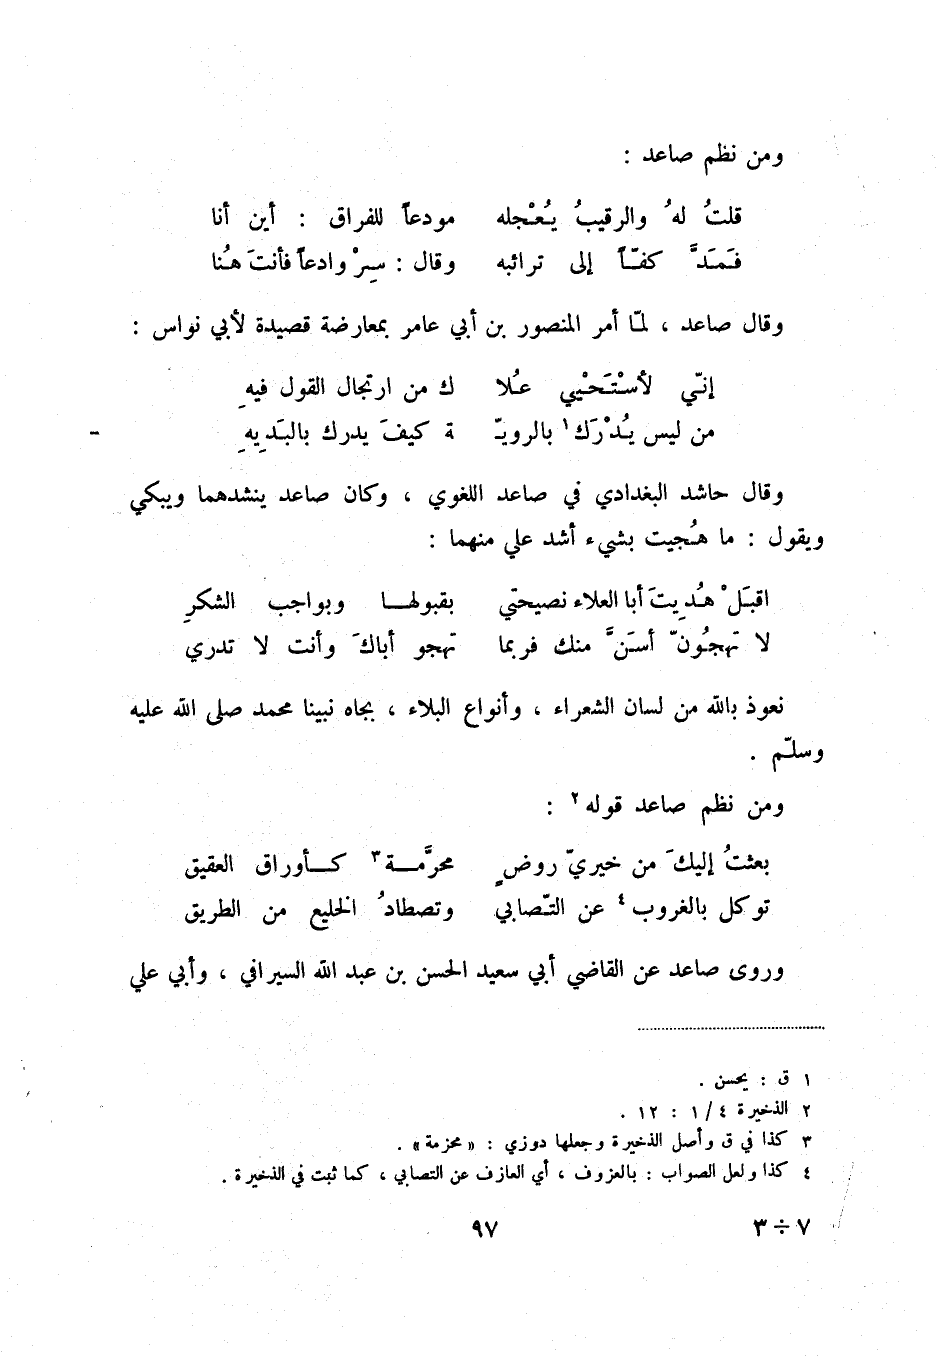 ومن نظم صاعد :
قلتُ لهُ والرقيبُ يُعْجله    مودعاً للفراق : أين أنا
فَمَدَّ كفّاً إلى ترائبه    وقال : سِرْ وادعاً فأنتَ هُنا
وقال صاعد ، لمّا أمر المنصور بن أبي عامر بمعارضة قصيدة لأبي نواس :
إنّي لأسْتَحْيي عُلا    ك من ارتجال القول فيهِ
من ليس يُدْرَك١ بالرويّـ    ـة كيفَ يدرك بالبَدِيهِ
وقال حاشد البغدادي في صاعد اللغوي ، وكان صاعد ينشدهما ويبكي
ويقول : ما هُجيت بشيء أشد علي منهما :
اقبَلْ هُدِيتَ أبا العلاء نصيحتي    بقبولهـا وبواجب الشكرِ
لا تهجُونّ أسَنَّ منك فربما    تهجو أباكَ وأنت لا تدري
نعوذ بالله من لسان الشعراء ، وأنواع البلاء ، بجاه نبينا محمد صلى الله عليه
وسلّم .
ومن نظم صاعد قوله٢ :
بعثتُ إليكَ من خيريّ روضٍ    محرَّمـة٣ كـأوراق العقيق
توكل بالغروب٤ عن التّصابي    وتصطادُ الخليع من الطريق
وروى صاعد عن القاضي أبي سعيد الحسن بن عبد الله السيرافي ، وأبي علي
١ ق : يحسن .
٢ الذخيرة ٤ / ١ : ١٢ .
٣ كذا في ق وأصل الذخيرة وجعلها دوزي : « محزمة » .
٤ كذا ولعل الصواب : بالعزوف ، أي العازف عن التصابي ، كما ثبت في الذخيرة .
٧ ÷ ٣    ٩٧